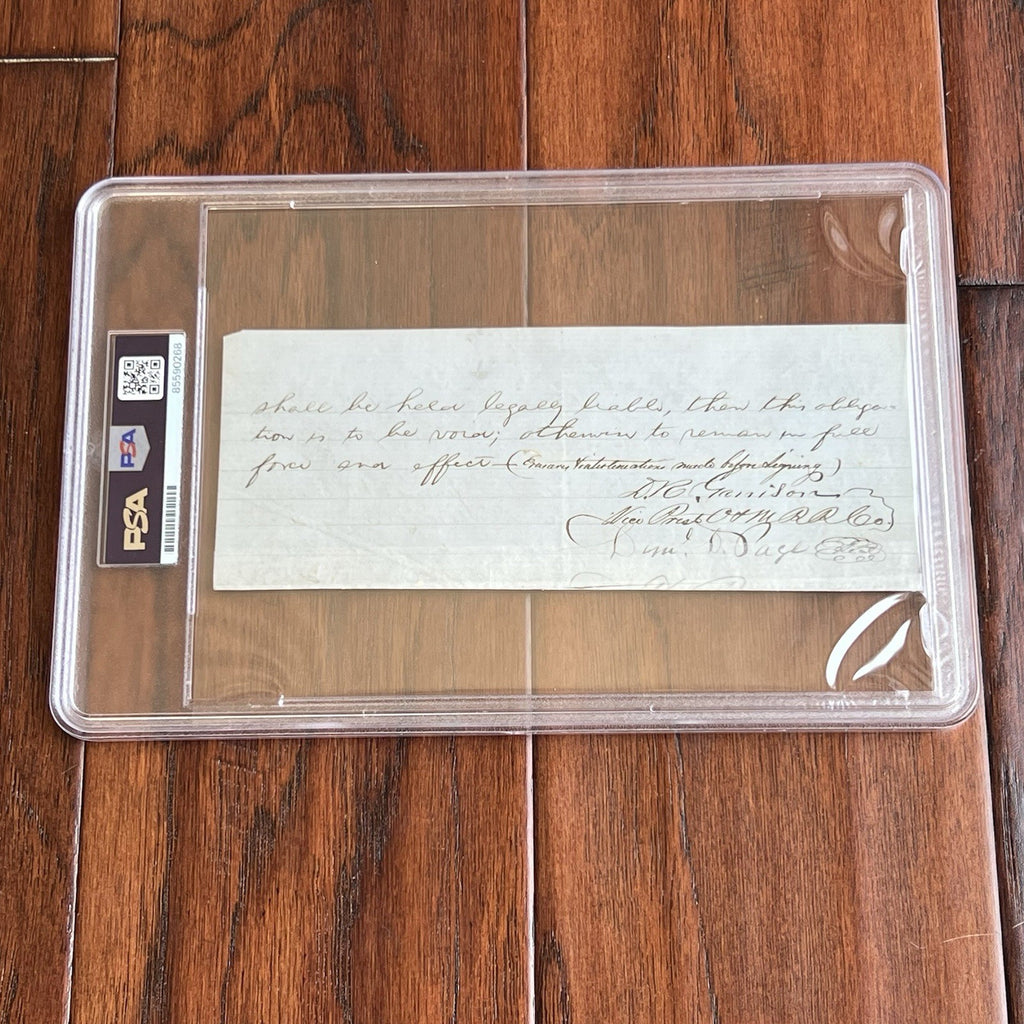 shall be held legally liable, then this obliga-
tion is to be void; otherwise to remain in full
force and effect (Erasures & interlineations made before signing)
D. R. Garrison
Vice Prest O & M R R Co.
Page
85590268
PSA
PSA